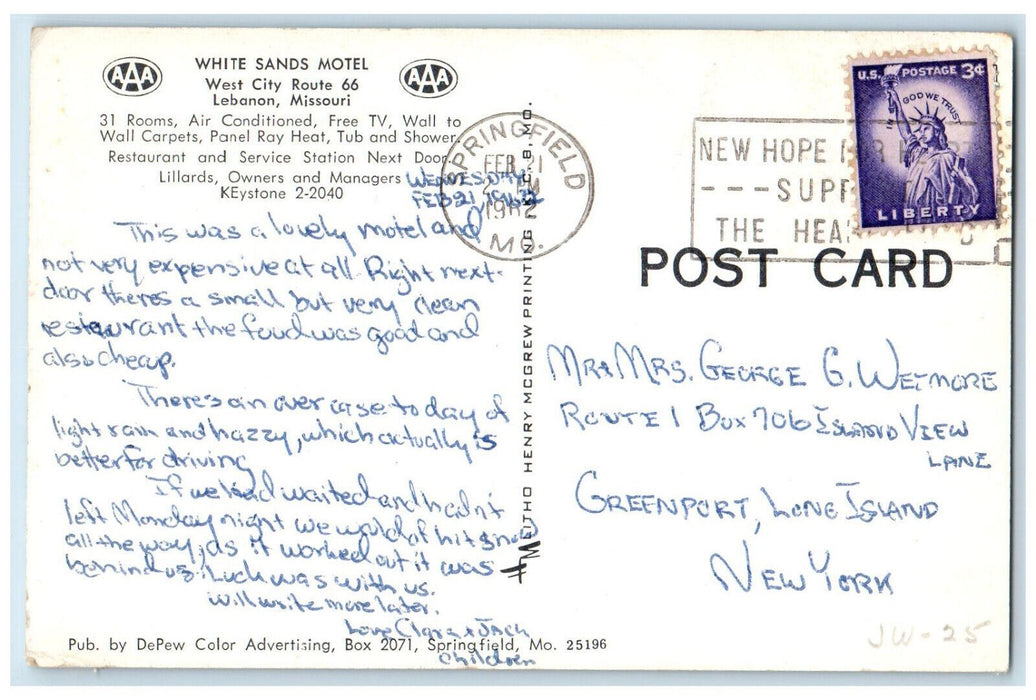 AAA
WHITE SANDS MOTEL
AAA
West City Route 66
Lebanon, Missouri
31 Rooms, Air Conditioned, Free TV, Wall to
Wall Carpets, Panel Ray Heat, Tub and Shower.
Restaurant and Service Station Next Door.
Lillards, Owners and Managers
KEystone 2-2040
WEDNESDAY
FEB 21, 1962
This was a lovely motel and
not very expensive at all. Right next-
door theres a small but very clean
restaurant the food was good and
also cheap.
There's an over case today of
light rain and hazzy, which actually is
better for driving
If we had waited and hadn't
left Monday night we would of hit snow
all the way, as it worked out it was
behind us. Luck was with us.
Will write more later.
Love Clara & Jack
children
Pub. by DePew Color Advertising, Box 2071, Springfield, Mo. 25196
LITHO HENRY MCGREW PRINTING K.C. 8, MO.
HM
SPRINGFIELD
FEB 21
PM
1962
MO.
NEW HOPE
SUPP
THE HEA
U.S. POSTAGE 3¢
IN GOD WE TRUST
LIBERTY
POST CARD
MR & MRS. GEORGE G. WETMORE
ROUTE 1 BOX 706 ISLAND VIEW
LANE
GREENPORT, LONG ISLAND
NEW YORK
JW-25